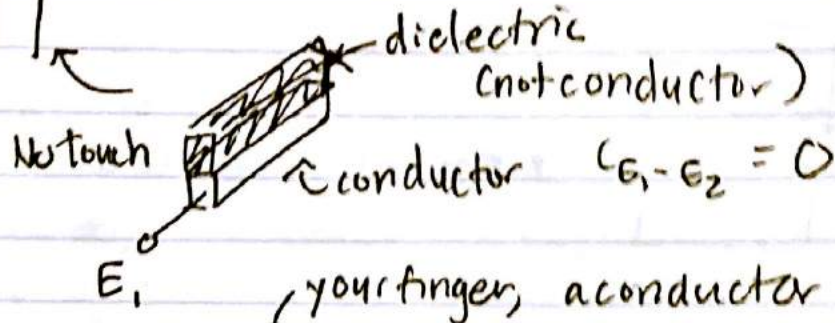 dielectric
(not conductor)
No touch
conductor (E₁ - E₂ = 0
E₁
, your finger, a conductor